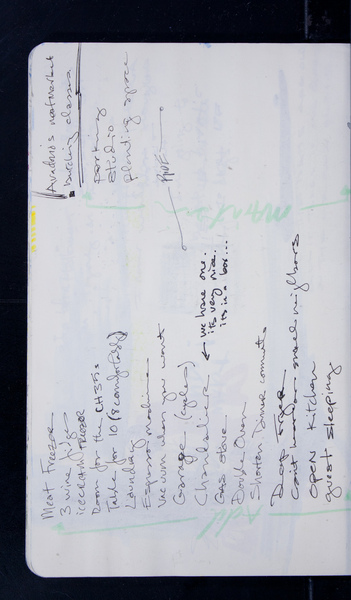 Meat Freezer
3 wine fridges
ice cream freezer
Room for the
Table for 10 (8 comfortably)
Laundry
Espresso machine
Vacuum when you want
Garage (cycles)
Chandelier ← we have one.
it's very nice.
it's in a box...
Gas stove
Double Oven
Shorten Joiner commute
Deep Fryer
Can't hear or smell neighbors
Open Kitchen
guest sleeping
Add
butchling classes
Parking
Studio
planting space